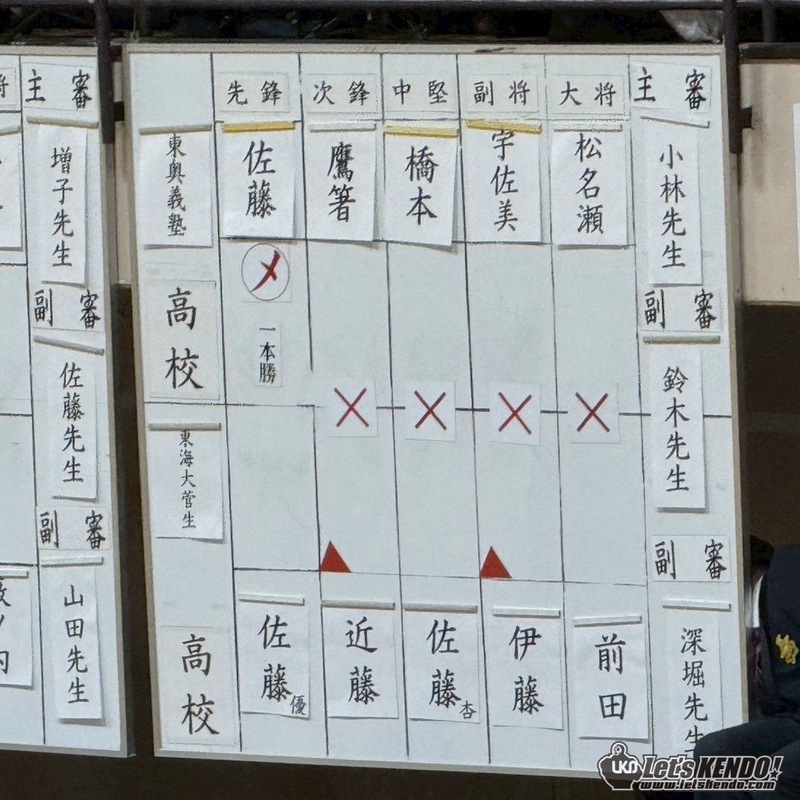 将 主審
増子先生
副審
佐藤先生
副審
山田先生
先鋒 次鋒 中堅 副将 大将 主審
東奥義塾 佐藤 鷹箸 橋本 宇佐美 松名瀬 小林先生
メ
一本勝
高校
副審
鈴木先生
東海大菅生
副審
高校 佐藤優 近藤 佐藤杏 伊藤 前田 深堀先生
LKN Let's KENDO!
www.letskendo.com